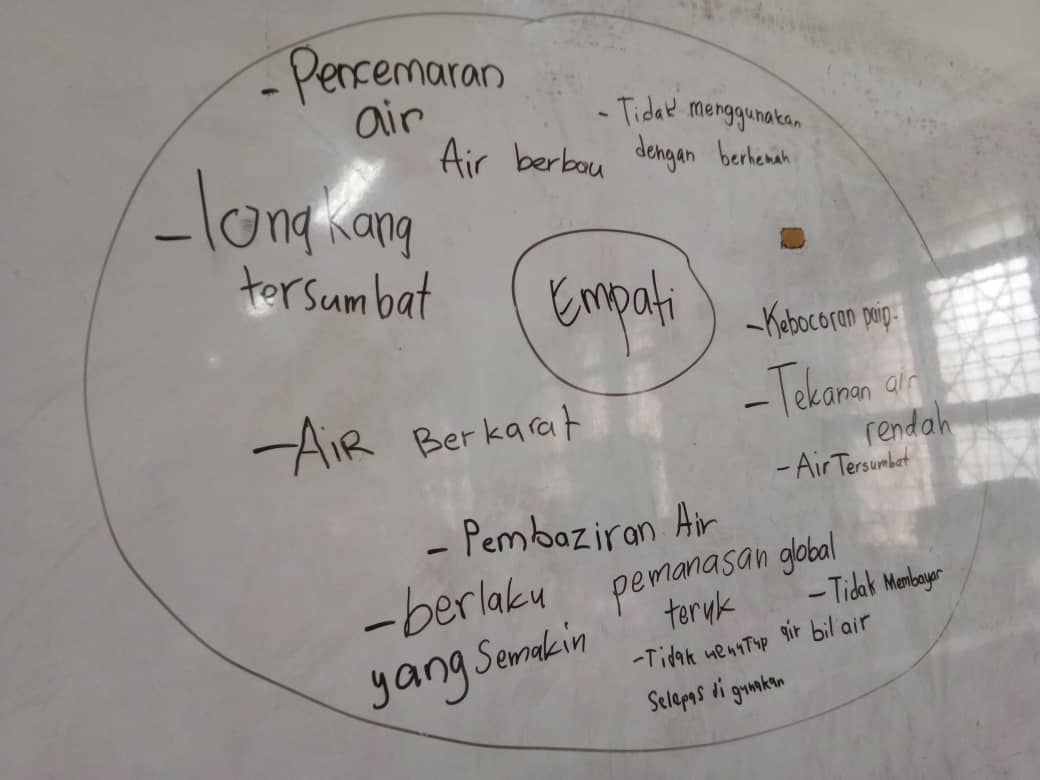 - Pencemaran
air
Air berbau
- Tidak menggunakan
dengan berhemah
- longkang
tersumbat
Empati
- Kebocoran paip.
- Tekanan air
rendah
- Air Tersumbat
- AiR Berkarat
- Pembaziran Air
- berlaku pemanasan global
yang Semakin teruk
- Tidak Membayar
bil air
- Tidak menutup air
Selepas di gunakan